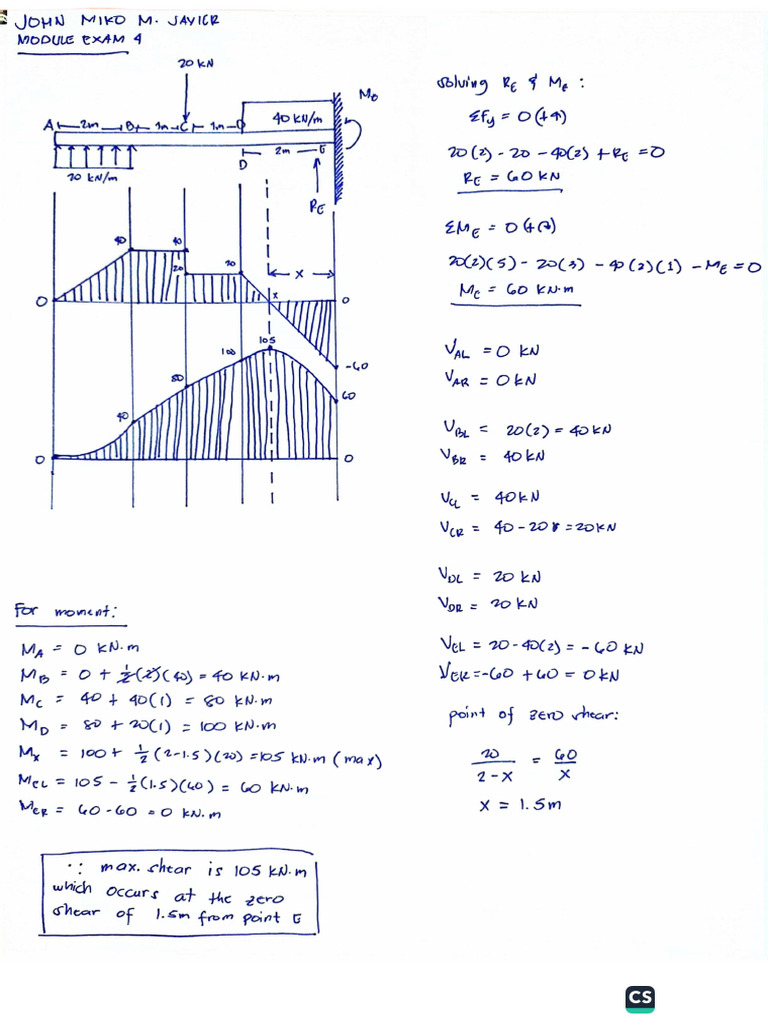 JOHN MIKO M. JAVIER
MODULE EXAM 4
20 KN
M₀
A 2m B 1m C 1m D
40 KN/m
2m E
D
20 KN/m
R_E
40 40
20 20
x
x
0 0
-60
105
100
80
60
40
0 0
solving R_E & M_E :
ΣFy = 0 (+↑)
20(2) - 20 - 40(2) + R_E = 0
R_E = 60 KN
ΣM_E = 0 (+↷)
20(2)(5) - 20(3) - 40(2)(1) - M_E = 0
M_E = 60 KN·m
V_AL = 0 KN
V_AR = 0 KN
V_BL = 20(2) = 40 KN
V_BR = 40 KN
V_CL = 40 KN
V_CR = 40 - 20 = 20 KN
V_DL = 20 KN
V_DR = 20 KN
V_EL = 20 - 40(2) = -60 KN
V_ER = -60 + 60 = 0 KN
point of zero shear:
20/(2-x) = 60/x
x = 1.5m
For moment:
M_A = 0 KN·m
M_B = 0 + ½(2)(40) = 40 KN·m
M_C = 40 + 40(1) = 80 KN·m
M_D = 80 + 20(1) = 100 KN·m
M_X = 100 + ½(2-1.5)(20) = 105 KN·m (max)
M_EL = 105 - ½(1.5)(60) = 60 KN·m
M_ER = 60 - 60 = 0 KN·m
∵ max. shear is 105 KN·m
which occurs at the zero
shear of 1.5m from point E
CS